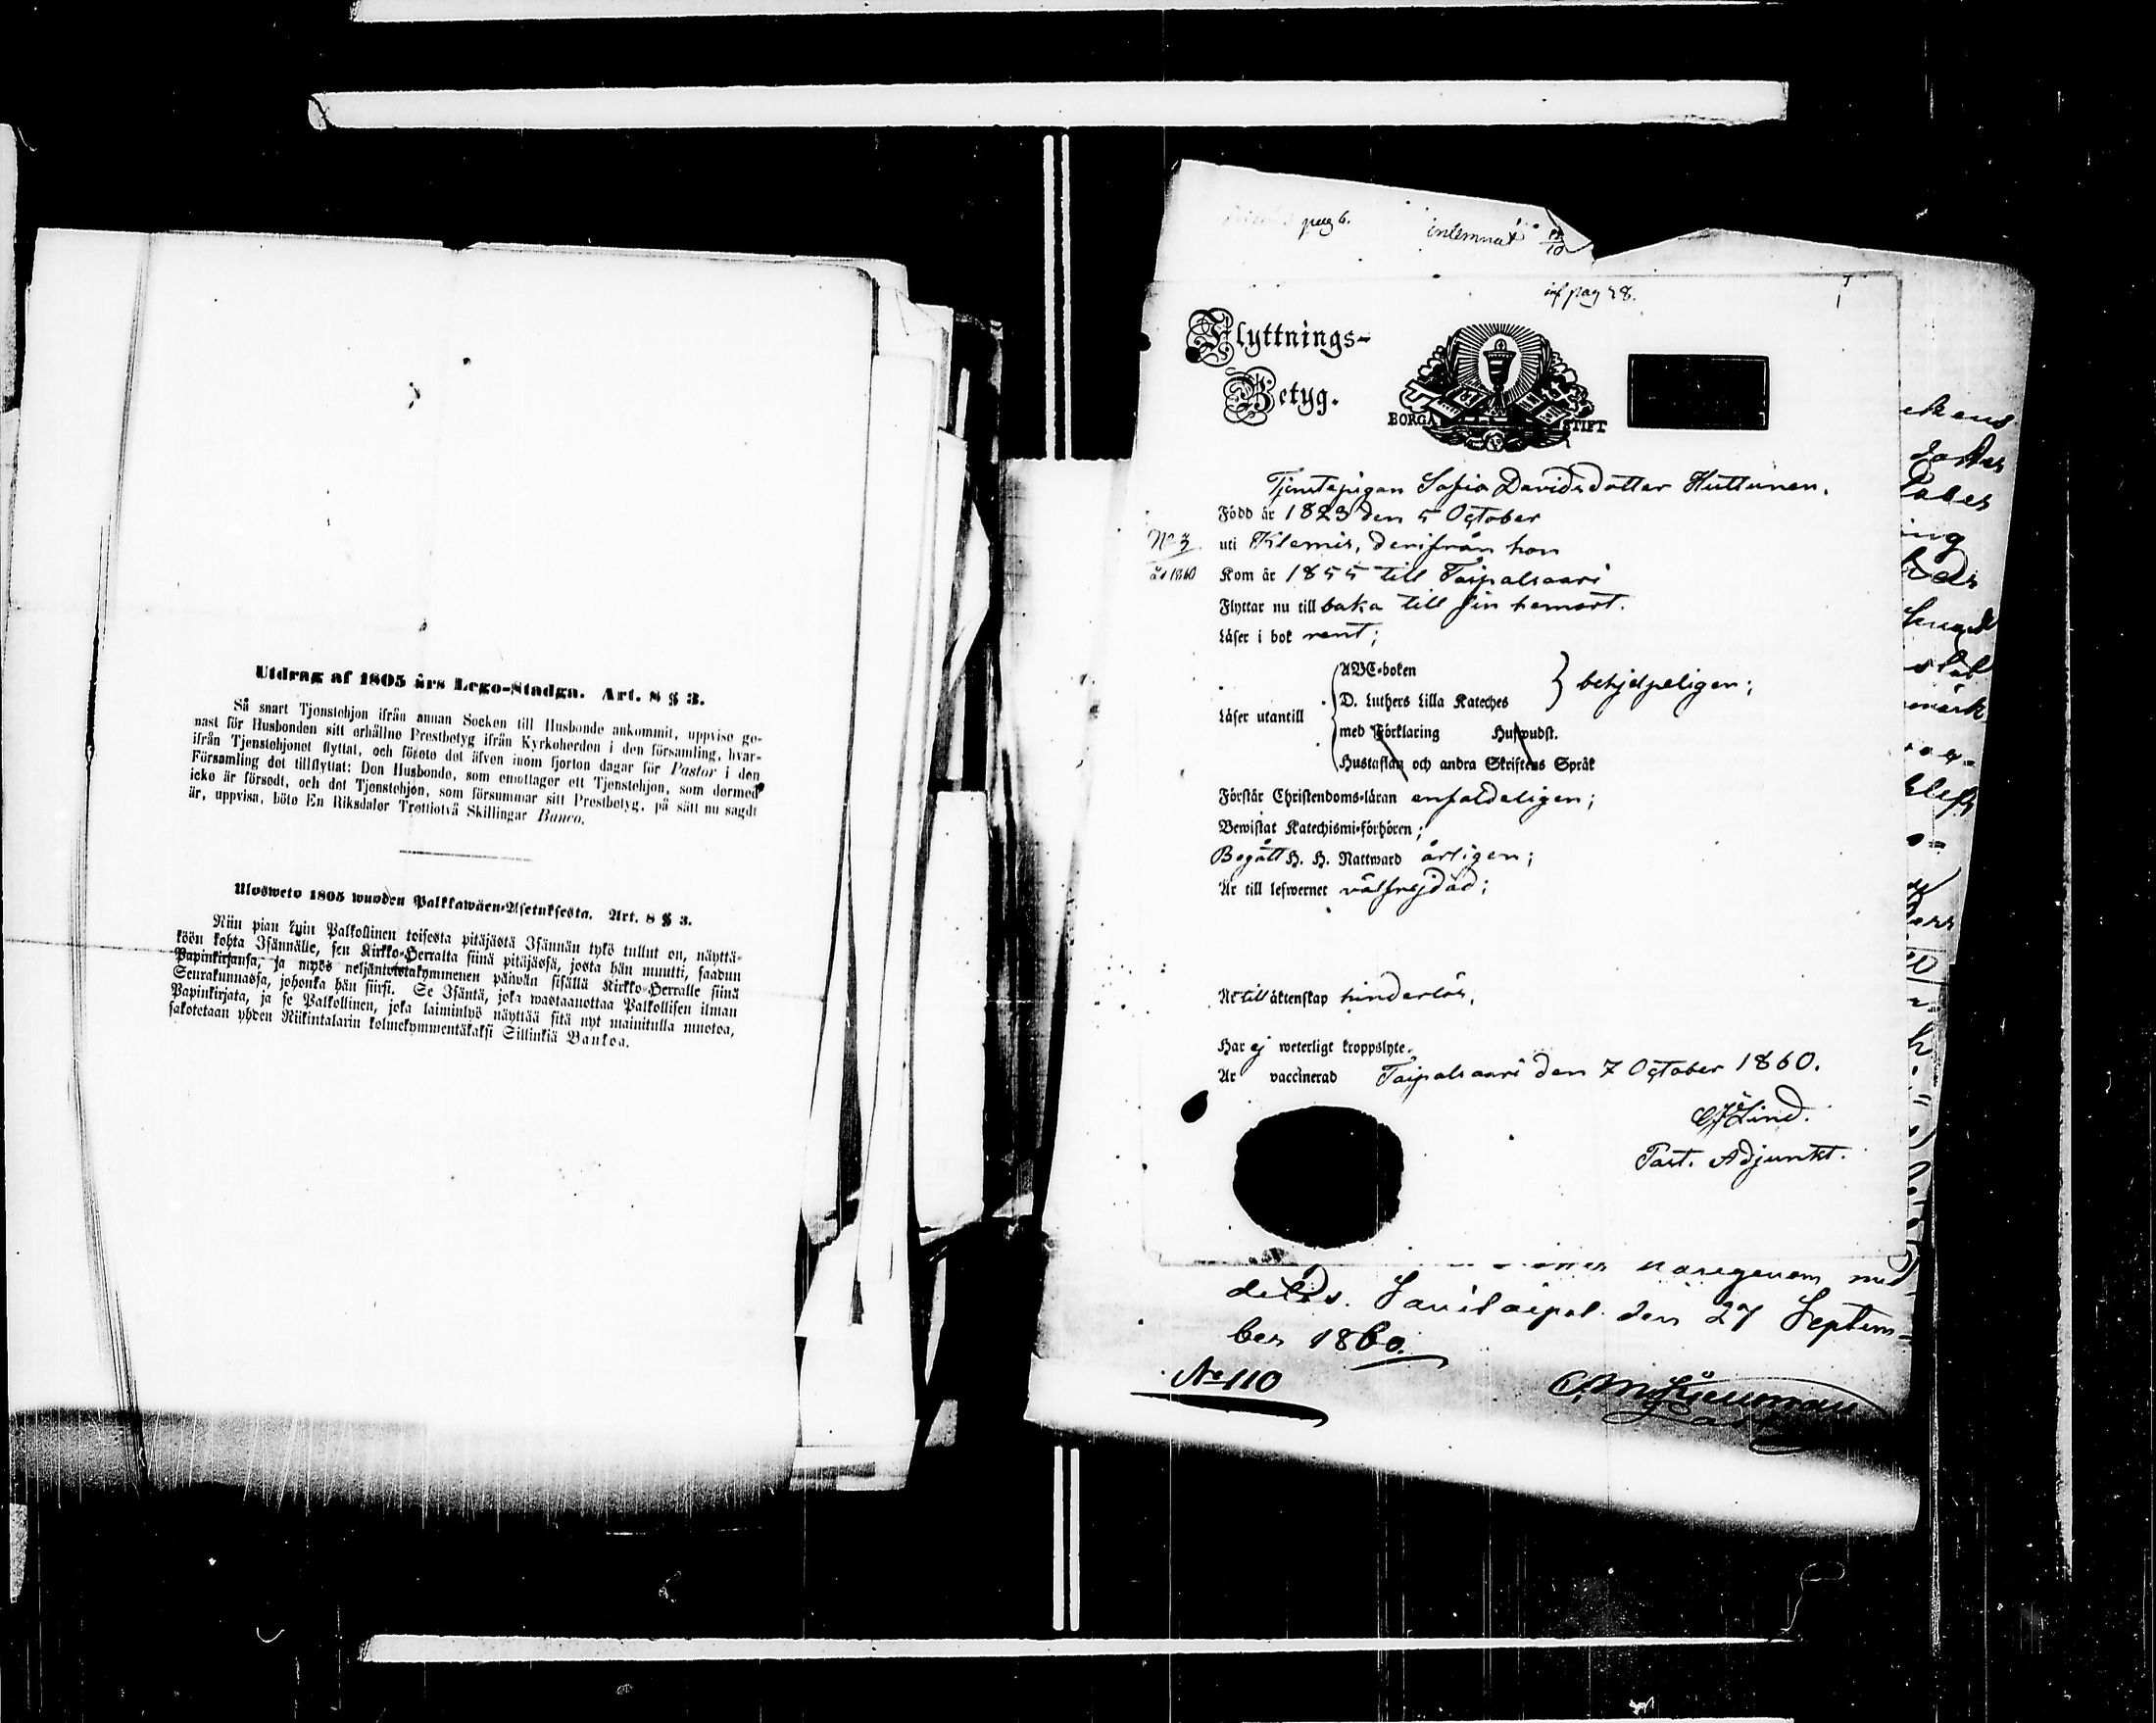 Utdrag af 1805 års Lego-Stadga. Art. 8 § 3.
Så snart Tjenstehjon ifrån annan Socken till Husbonde ankommit, uppvise ge-
nast för Husbonden sitt erhållne Prestbetyg ifrån Kyrkoherden i den församling, hvar-
ifrån Tjenstehjonet flyttat, och förete det äfven inom fjorton dagar för Pastor i den
Församling det tillflyttat: Den Husbonde, som emottager ett Tjenstehjon, som dermed
icke är försedt, och det Tjenstehjon, som försummar sitt Prestbetyg, på sätt nu sagdt
är, uppvisa, böte En Riksdaler Trettiotvå Skillingar Banco.
Ulosweto 1805 wuoden Palkkawäen-Asetuksesta. Art. 8 § 3.
Niin pian kuin Palkollinen toisesta pitäjästä Isännän tykö tullut on, näyttä-
köön kohta Isännälle, sen Kirkko-Herralta siinä pitäjässä, josta hän muutti, saadun
Papinkirjansa, ja myös neljäntoistakymmenen päiwän sisällä Kirkko-Herralle siinä
Seurakunnassa, johonka hän siirsi. Se Isäntä, joka wastaanottaa Palkollisen ilman
Papinkirjata, ja se Palkollinen, joka laiminlyö näyttää sitä nyt mainitulla muotoa,
sakotetaan yhden Riikintalarin kolmekymmentäkaksi Sillinkiä Bankoa.
pag 6. inlemnat 12/10
inf pag 28.
Flyttnings-
Betyg.
BORGÅ STIFT
Tjenstepigan Sofia Davidsdotter Huttunen.
Född år 1823 den 5 October
No 3. uti Klemis, derifrån hon
Kom år 1855 till Taipalsaari
Flyttar nu till baka till sin hemort.
Läser i bok rent;
ABC-boken
D. Luthers Lilla Kateches
behjelpeligen;
Läser utantill
med Förklaring Huswudst.
Hustaflan och andra Skriftens Språk
Förstår Christendoms-läran enfaldeligen;
Bewistat Katechismi-förhören;
Begått H. H. Nattward årligen;
Är till lefwernet välfrejdad;
Är till äktenskap hinderlös.
Har ej weterligt kroppslyte.
Är vaccinerad Taipalsaari den 7 October 1860.
Lind.
Past. Adjunkt.
varigenom med
delas. Savitaipal den 27 Septem-
ber 1860.
No 110